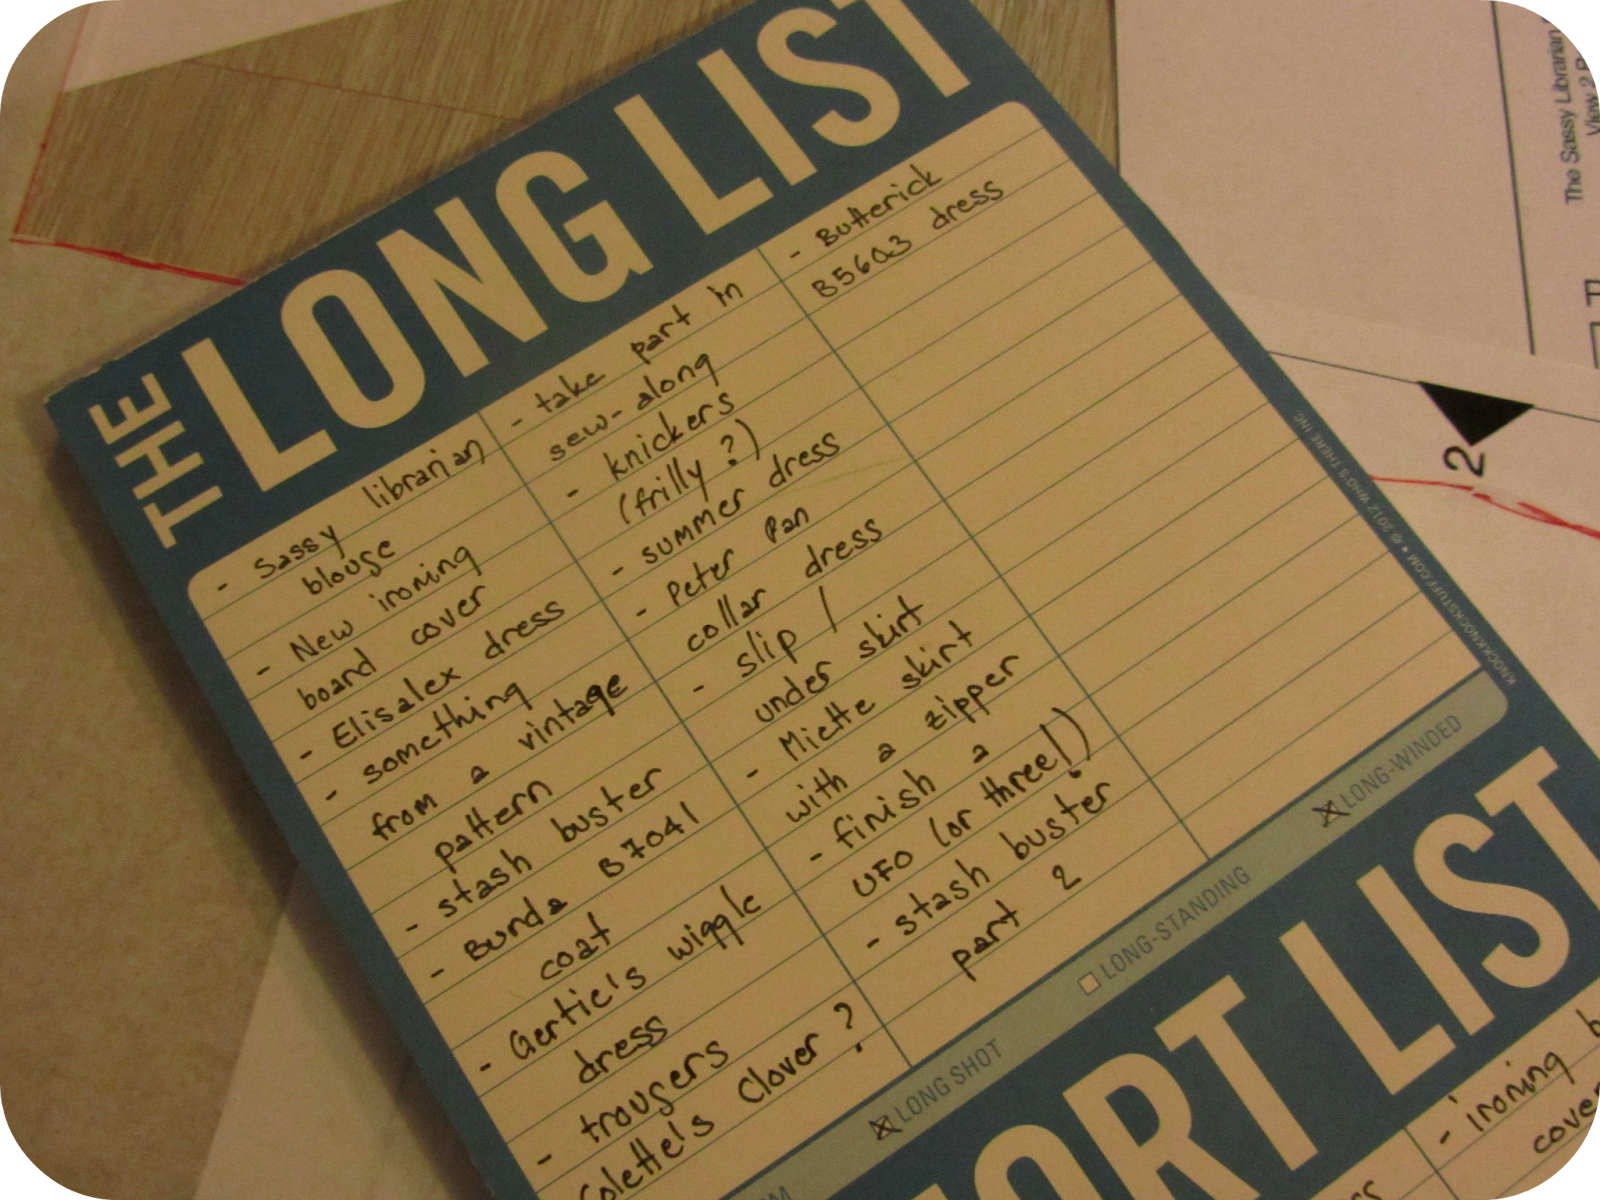 THE LONG LIST
- Sassy librarian
blouse
- New ironing
board cover
- Elisalex dress
- something
from a vintage
pattern
- stash buster
- Burda B7041
coat
- Gertie's wiggle
dress
- trousers
Colette's Clover?
- take part in
sew-along
- knickers
(frilly?)
- summer dress
- Peter Pan
collar dress
- slip /
under skirt
- Miette skirt
with a zipper
- finish a
UFO (or three!)
- stash buster
part 2
- Butterick
B5603 dress
LONG SHOT
LONG-STANDING
LONG-WINDED
KNOCKKNOCKSTUFF.COM • © 2012 WHO'S THERE INC.
ORT LIST
- ironing
cover
The Sassy Librarian
View 2
2